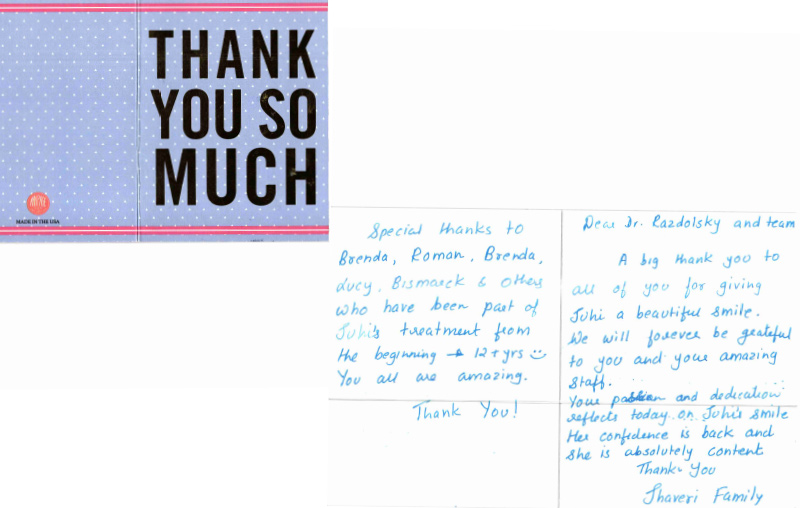 THANK
YOU SO
MUCH
MADE IN THE USA
Special thanks to
Brenda, Roman, Brenda,
Lucy, Bismarck & Others
who have been part of
Juhi's treatment from
the beginning → 12+yrs
You all are amazing.
Thank You!
Dear Dr. Razdolsky and team
A big thank you to
all of you for giving
Juhi a beautiful smile.
We will forever be grateful
to you and your amazing
staff.
Your passion and dedication
reflects today on Juhi's smile
Her confidence is back and
she is absolutely content
Thank You
Jhaveri Family